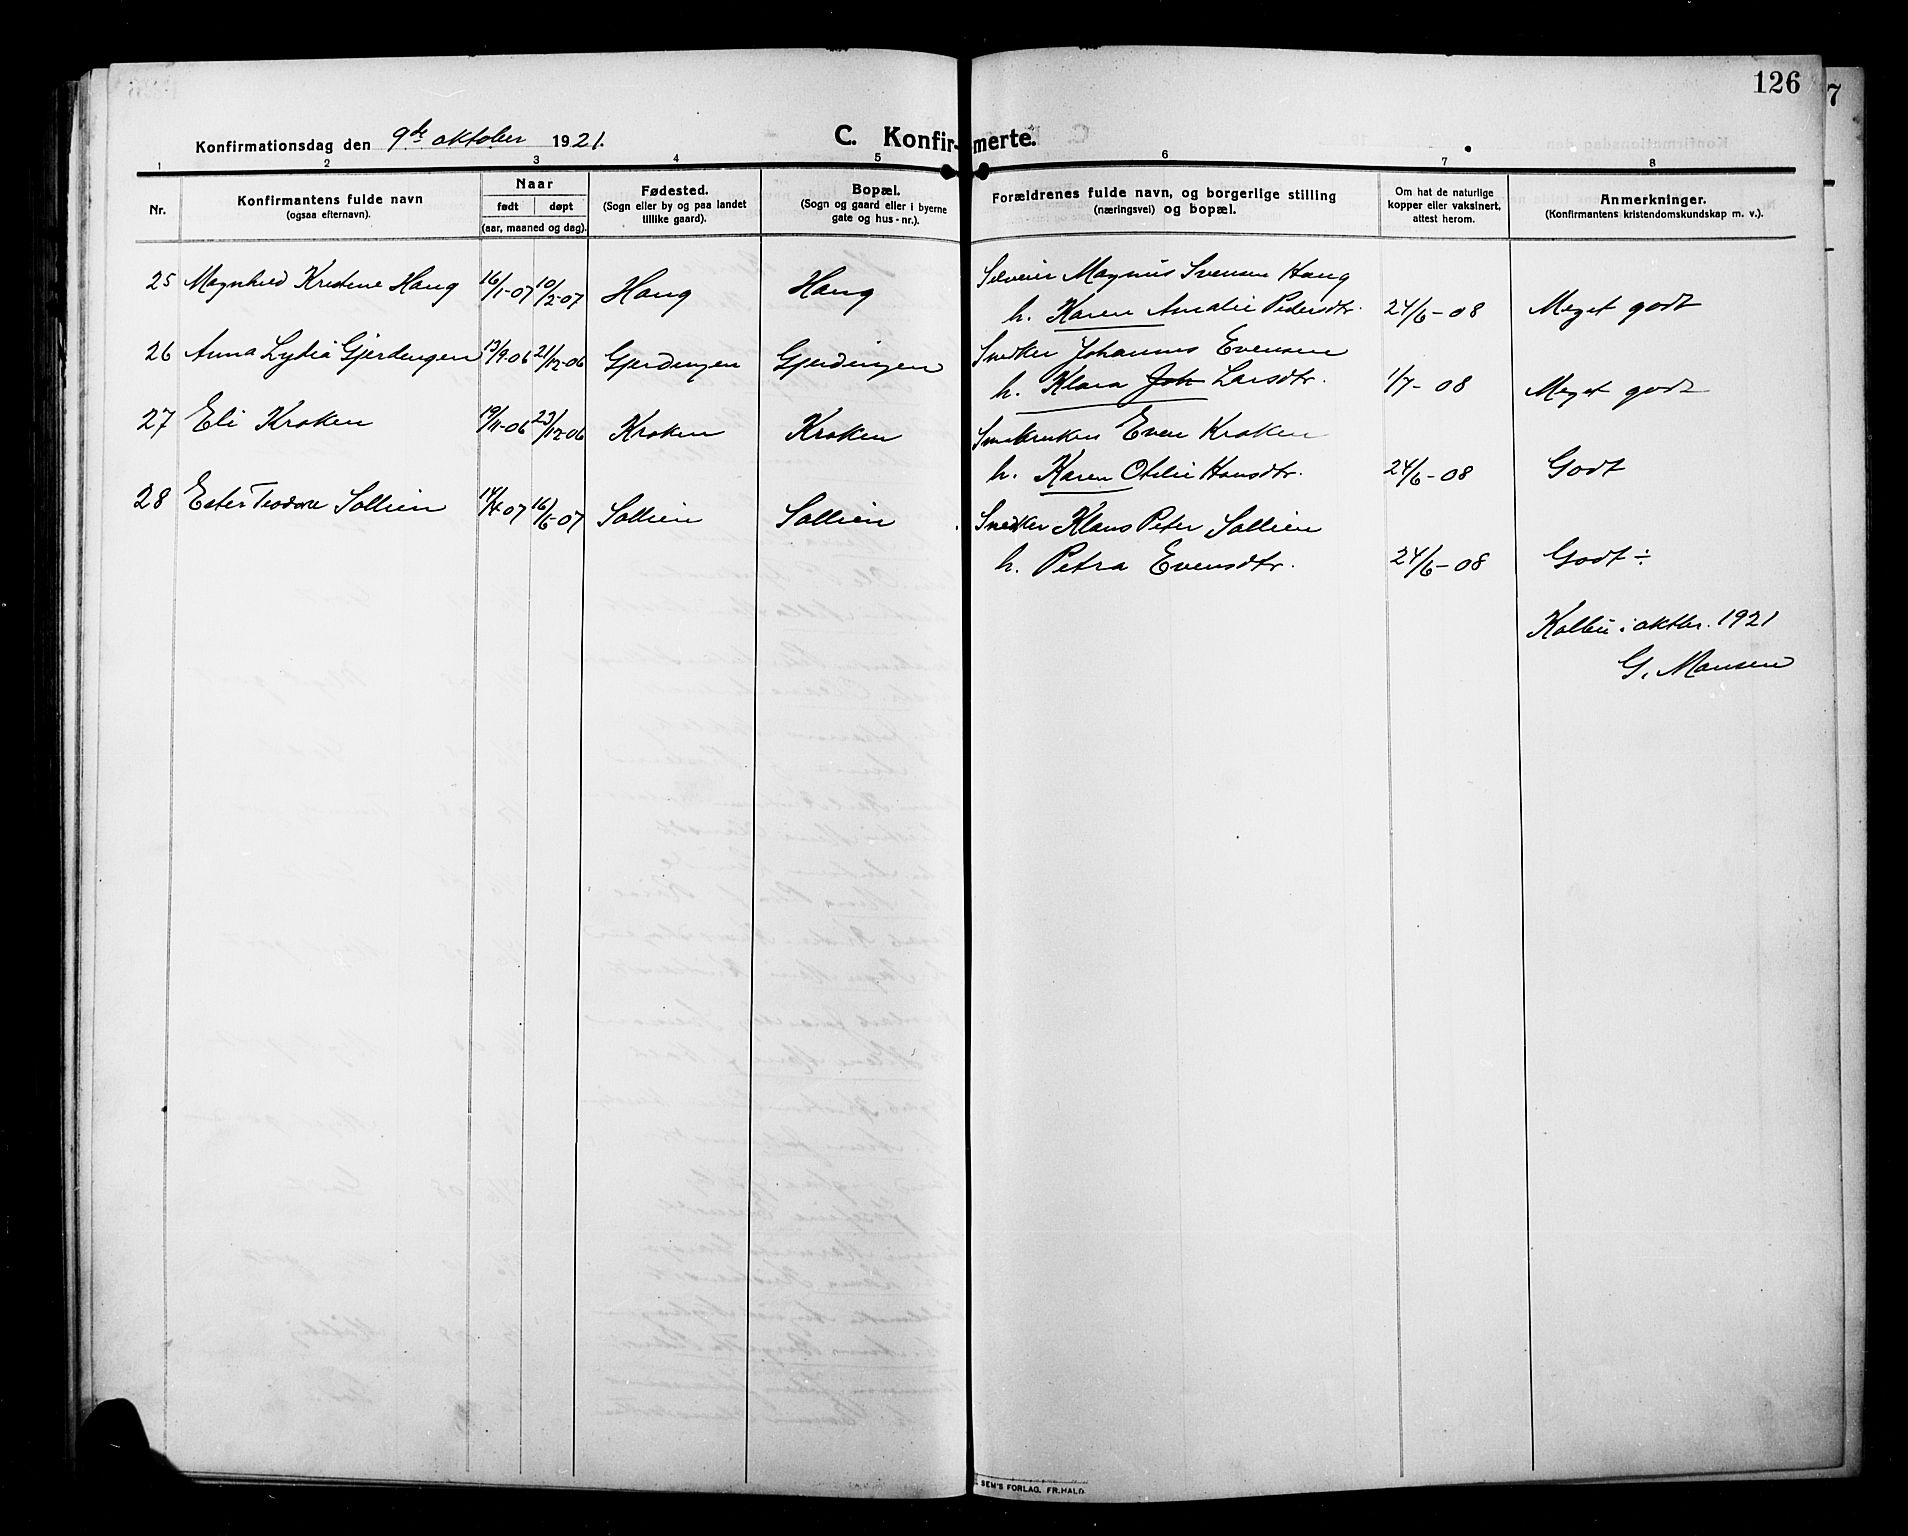 126
7
Konfirmationsdag den 9de oktober 1921.
C. Konfirmerte.
1 2 3 4 5 6 7 8
Nr.
Konfirmantens fulde navn
(ogsaa efternavn).
Naar
født døpt
(aar, maaned og dag).
Fødested.
(Sogn eller by og paa landet
tillike gaard).
Bopæl.
(Sogn og gaard eller i byerne
gate og hus-nr.).
Forældrenes fulde navn, og borgerlige stilling
(næringsvei) og bopæl.
Om hat de naturlige
kopper eller vaksinert,
attest herom.
Anmerkninger.
(Konfirmantens kristendomskundskap m. v.).
25 Magnhild Kristine Haug 16/1-07 10/2-07 Haug Haug Selveier Magnus Svensen Haug
h. Karen Amalie Pedersdtr. 24/6-08 Meget godt
26 Anna Lydia Gjerdengen 13/9-06 21/12-06 Gjerdingen Gjerdingen Snekker Johannes Evensen
h. Klara Joh Larsdtr. 1/7-08 Meget godt
27 Eli Kroken 19/11-06 23/12-06 Kroken Kroken Smabruker Even Kroken
h. Karen Otilie Hansdtr. 24/6-08 Godt
28 Ester Teodore Sollien 14/4-07 16/6-07 Sollien Sollien Snedker Klaus Peter Sollien
h. Petra Evensdtr. 24/6-08 Godt ÷
Kolbu i oktbr. 1921
G. Monsen
SEM'S FORLAG. FR.HALD.